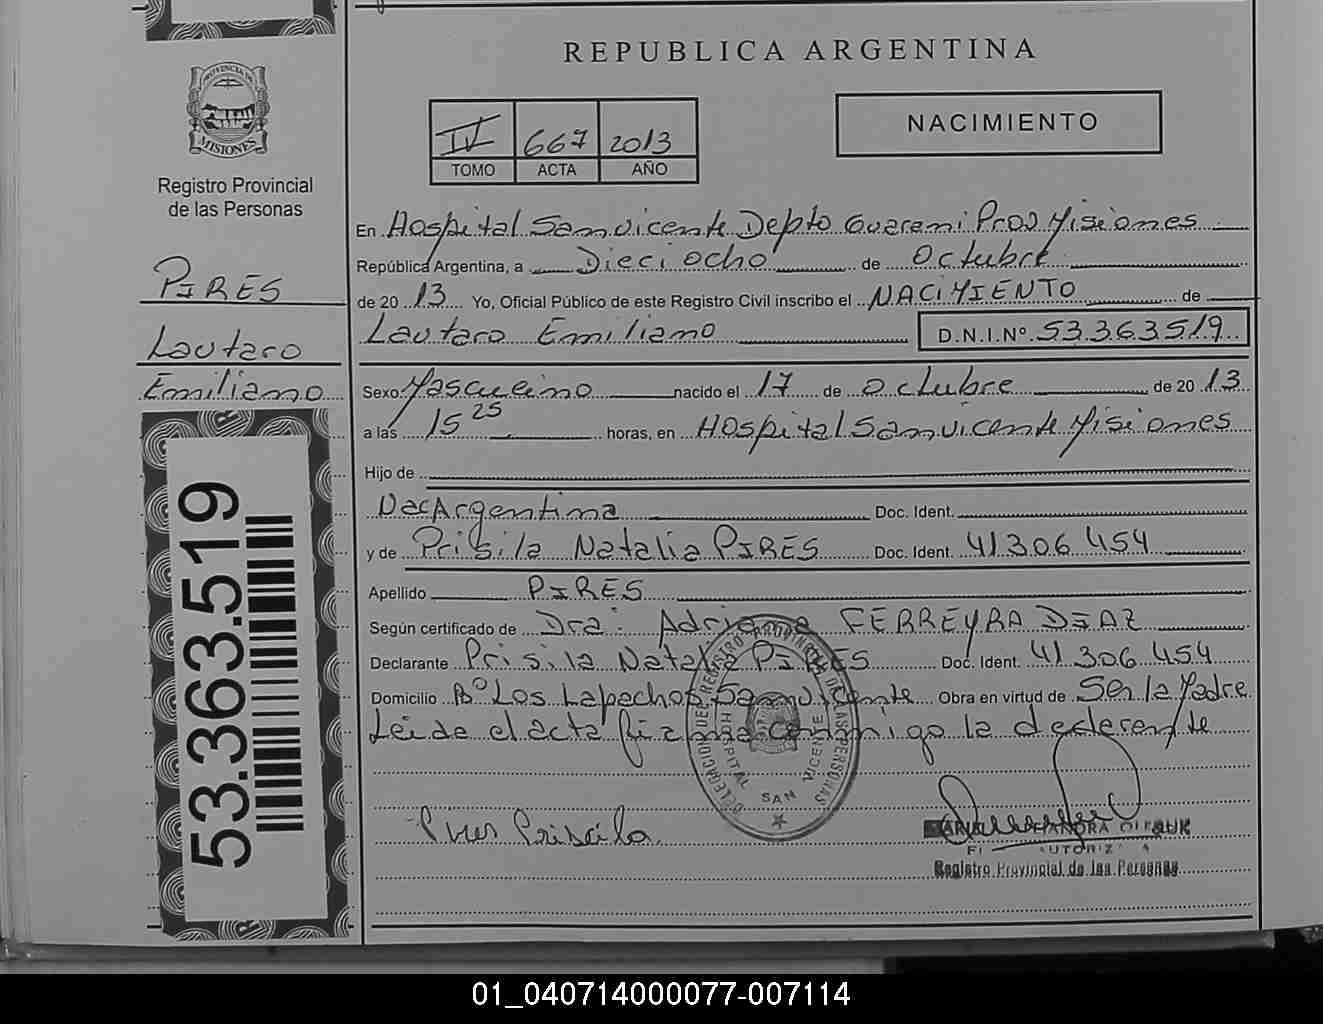 REPUBLICA ARGENTINA
PROVINCIA DE
MISIONES
Registro Provincial
de las Personas
IV 667 2013
TOMO ACTA AÑO
NACIMIENTO
PIRES
Lautaro
Emiliano
53.363.519
En Hospital San Vicente Depto Guarani Prov Misiones
República Argentina, a Dieciocho de Octubre
de 2013 Yo, Oficial Público de este Registro Civil inscribo el NACIMIENTO de
Lautaro Emiliano D.N.I.Nº 53.363.519
Sexo Masculino nacido el 17 de octubre de 2013
a las 15 25 horas, en Hospital San Vicente Misiones
Hijo de
Nac Argentina Doc. Ident.
y de Prisila Natalia PIRES Doc. Ident. 41 306 454
Apellido PIRES
Según certificado de Dra: Adriana FERREYRA DIAZ
Declarante Prisila Natalia PIRES Doc. Ident. 41 306 454
Domicilio Bº Los Lapachos San Vicente Obra en virtud de Ser la Madre
Leida el acta firma conmigo la declarante
DELEGACION DEL REGISTRO PROVINCIAL DE LAS PERSONAS
HOSPITAL SAN VICENTE
Pires Priscila
Registro Provincial de las Personas
01_040714000077-007114